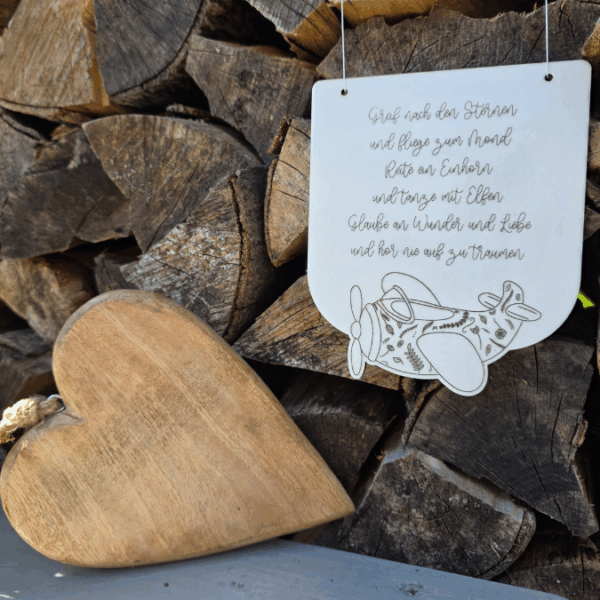 Greif nach den Sternen
und fliege zum Mond
Reite ein Einhorn
und tanze mit Elfen
Glaube an Wunder und Liebe
und hör nie auf zu träumen